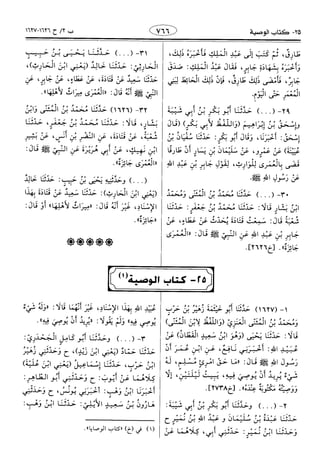 ٢٥- كتاب الوصية
٧٦٦
ب ٢/ ح ١٦٢٦-١٦٢٧
طارق، ثم كتب إلى عبد الملك فأخبره ذلك،
وأخبره بشهادة جابر، فقال عبد الملك: صدق
جابر، فأمضى ذلك طارق، فإن ذلك الحائط لبني
المعمر حتى اليوم.
٢٩- (...) حدثنا أبو بكر بن أبي شيبة
وإسحق بن إبراهيم (واللفظ لأبي بكر) (قال
إسحق: أخبرنا، وقال أبو بكر: حدثنا سفيان بن
عيينة) عن عمرو، عن سليمان بن يسار أن طارقا
قضى بالعمرى للوارث، لقول جابر بن عبد الله
عن رسول الله ﷺ.
٣٠- (...) حدثنا محمد بن المثنى ومحمد
ابن بشار قالا: حدثنا محمد بن جعفر: حدثنا
شعبة قال: سمعت قتادة يحدث عن عطاء، عن
جابر بن عبد الله عن النبي ﷺ قال: «العمرى
جائزة». [ع٢٦٢٦].
٣١- (...) حدثنا يحيى بن حبيب
الحارثي: حدثنا خالد (يعني ابن الحارث)،
حدثنا سعيد عن قتادة، عن عطاء، عن جابر، عن
النبي ﷺ أنه قال: «العمرى ميراث لأهلها».
٣٢- (١٦٢٦) حدثنا محمد بن المثنى وابن
بشار، قالا: حدثنا محمد بن جعفر: حدثنا
شعبة، عن قتادة، عن النضر بن أنس، عن بشير
ابن نهيك، عن أبي هريرة عن النبي ﷺ قال:
«العمرى جائزة».
(...) وحدثنيه يحيى بن حبيب: حدثنا خالد
(يعني ابن الحارث): حدثنا سعيد عن قتادة بهذا
الإسناد، غير أنه قال: «ميراث لأهلها» أو قال:
«جائزة».
٢٥- كتاب الوصية(١)
١- (١٦٢٧) حدثنا أبو خيثمة زهير بن حرب
ومحمد بن المثنى العنزي (واللفظ لابن المثنى)
قالا: حدثنا يحيى (وهو ابن سعيد القطان) عن
عبيد الله: أخبرني نافع، عن ابن عمر أن
رسول الله ﷺ قال: «ما حق امرئ مسلم، له
شيء يريد أن يوصي فيه، يبيت ليلتين، إلا
ووصيته مكتوبة عنده». [ع٢٧٣٨].
٢- (...) وحدثنا أبو بكر بن أبي شيبة:
حدثنا عبدة بن سليمان وعبد الله بن نمير ح
وحدثنا ابن نمير: حدثني أبي، كلاهما عن
عبيد الله بهذا الإسناد، غير أنهما قالا: «وله شيء
يوصي فيه» ولم يقولا: «يريد أن يوصي فيه».
٣- (...) حدثنا أبو كامل الجحدري:
حدثنا حماد (يعني ابن زيد)، ح وحدثني زهير
ابن حرب، حدثنا إسماعيل (يعني ابن علية)
كلاهما عن أيوب: ح وحدثني أبو الطاهر:
أخبرنا ابن وهب: أخبرني يونس، ح وحدثني
هارون بن سعيد الأيلي: حدثنا ابن وهب:
(١) في (خ) «كتاب الوصايا».